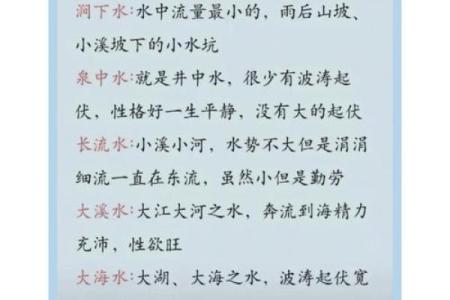 涧下水:水中流量最小的，雨后山坡、
小溪坡下的小水坑
泉中水:就是井中水，很少有波涛起
伏，性格好一生平静，没有大的起伏
长流水:小溪小河，水势不大但是涓涓
细流一直在东流，虽然小但是勤劳
大溪水:大江大河之水，奔流到海精力
充沛，性欲旺
大海水:大湖、大海之水，波涛起伏宽